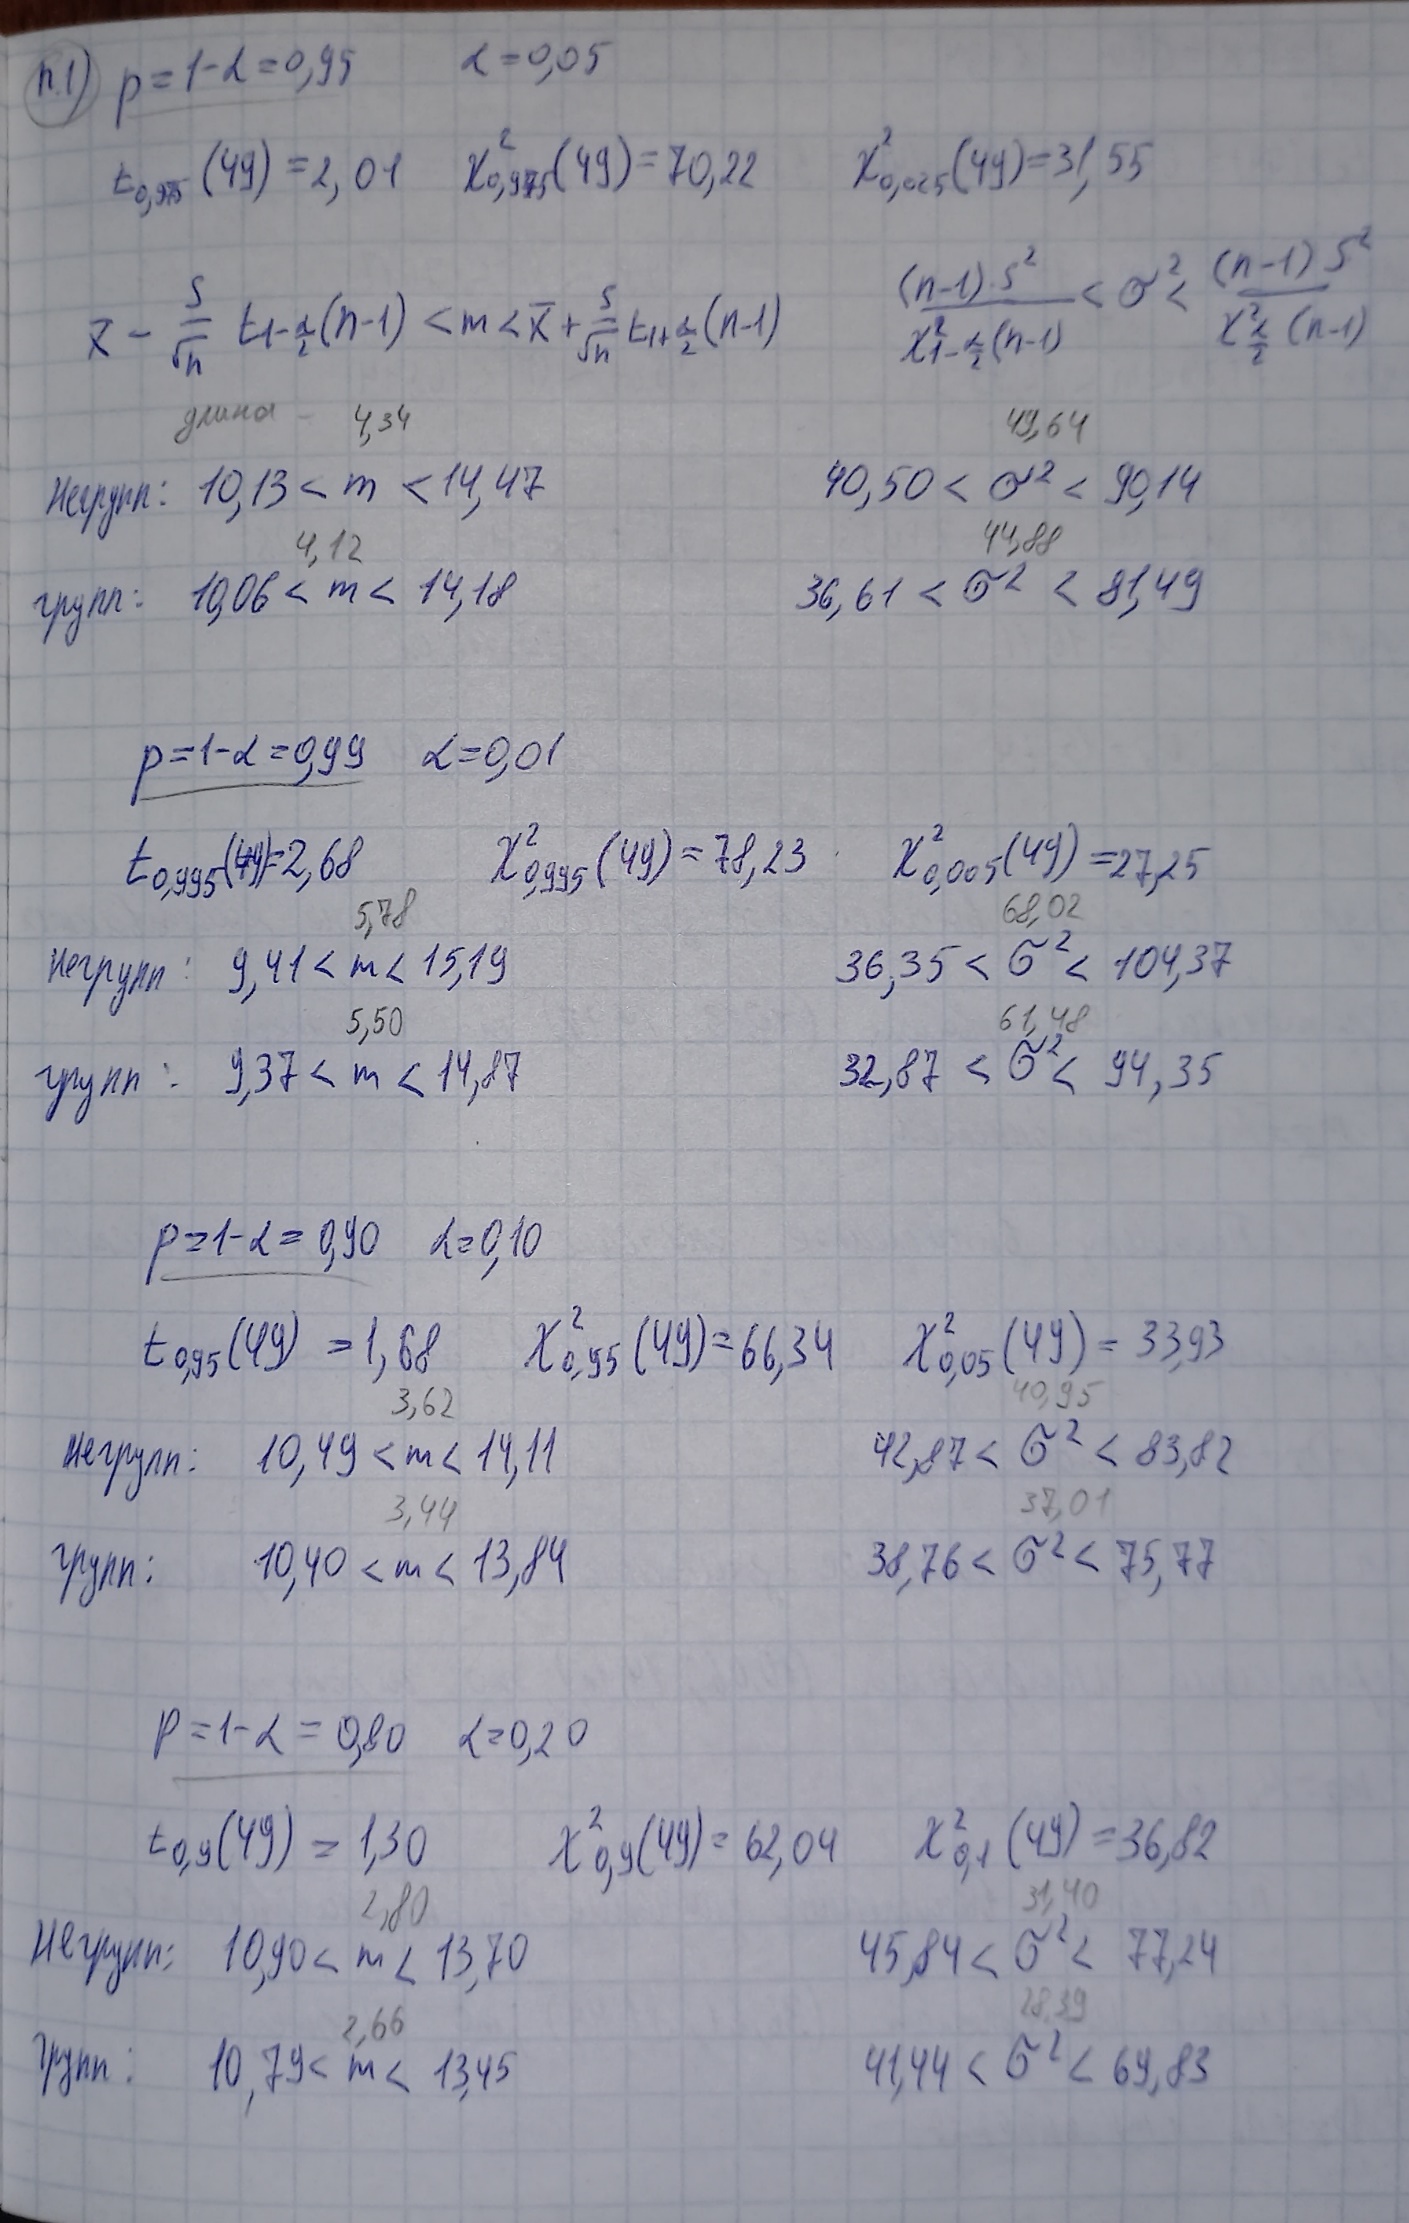 п.1) p = 1-α = 0,95 α = 0,05
t₀,₉₇₅(49) = 2,01 χ²₀,₉₇₅(49) = 70,22 χ²₀,₀₂₅(49) = 31,55
x̄ - S/√n t₁₋α/₂(n-1) < m < x̄ + S/√n t₁₊α/₂(n-1) (n-1)·S²/χ²₁₋α/₂(n-1) < σ² < (n-1)S²/χ²α/₂(n-1)
длина - 4,34 49,64
Негрупп: 10,13 < m < 14,47 40,50 < σ² < 90,14
4,12 44,88
групп: 10,06 < m < 14,18 36,61 < σ² < 81,49
p = 1-α = 0,99 α = 0,01
t₀,₉₉₅(49) = 2,68 χ²₀,₉₉₅(49) = 78,23 χ²₀,₀₀₅(49) = 27,25
5,78 68,02
Негрупп: 9,41 < m < 15,19 36,35 < σ² < 104,37
5,50 61,48
групп: 9,37 < m < 14,87 32,87 < σ² < 94,35
p = 1-α = 0,90 α = 0,10
t₀,₉₅(49) = 1,68 χ²₀,₉₅(49) = 66,34 χ²₀,₀₅(49) = 33,93
3,62 40,95
Негрупп: 10,49 < m < 14,11 42,87 < σ² < 83,82
3,44 37,01
групп: 10,40 < m < 13,84 38,76 < σ² < 75,77
p = 1-α = 0,80 α = 0,20
t₀,₉(49) = 1,30 χ²₀,₉(49) = 62,04 χ²₀,₁(49) = 36,82
2,80 31,40
Негрупп: 10,90 < m < 13,70 45,84 < σ² < 77,24
2,66 28,39
групп: 10,79 < m < 13,45 41,44 < σ² < 69,83